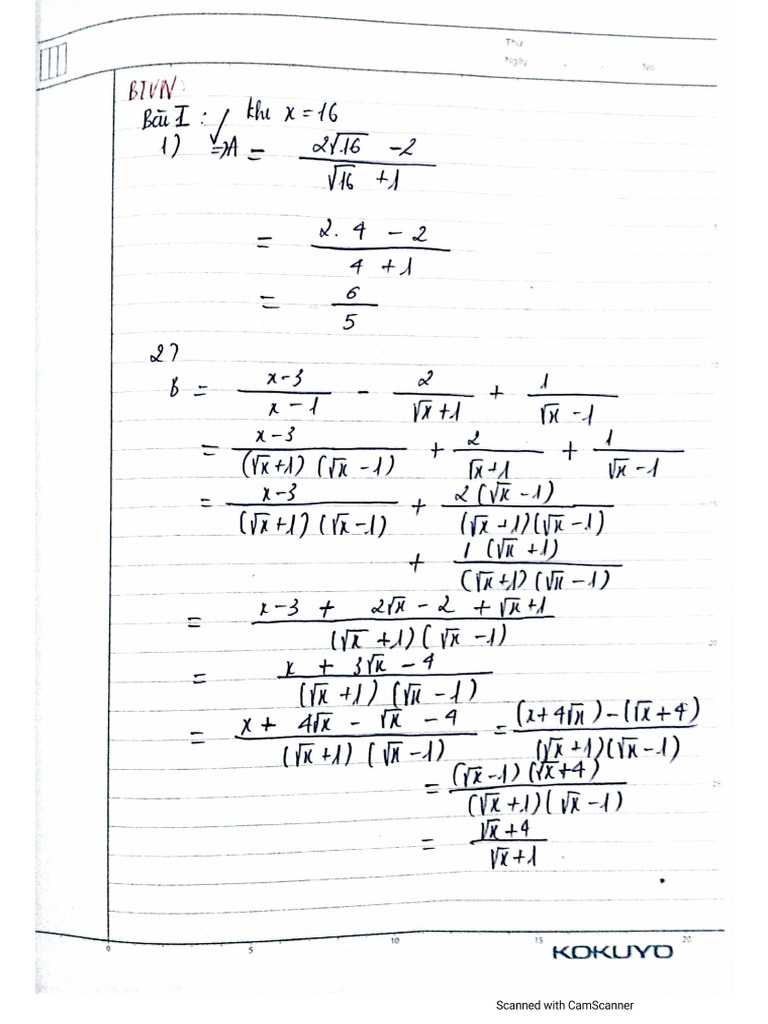 Thứ
Ngày . . No.
BTVN:
Bài I : khi x = 16
1) => A = (2√16 - 2)/(√16 + 1)
= (2. 4 - 2)/(4 + 1)
= 6/5
2)
B = (x-3)/(x-1) - 2/(√x+1) + 1/(√x-1)
= (x-3)/((√x+1)(√x-1)) + 2/(√x+1) + 1/(√x-1)
= (x-3)/((√x+1)(√x-1)) + 2(√x-1)/((√x+1)(√x-1))
+ 1(√x+1)/((√x+1)(√x-1))
= (x-3 + 2√x-2 + √x+1)/((√x+1)(√x-1))
= (x + 3√x - 4)/((√x+1)(√x-1))
= (x + 4√x - √x - 4)/((√x+1)(√x-1)) = ((x+4√x)-(√x+4))/((√x+1)(√x-1))
= (√x-1)(√x+4)/((√x+1)(√x-1))
= (√x+4)/(√x+1)
0 5 10 15 20
KOKUYO
Scanned with CamScanner